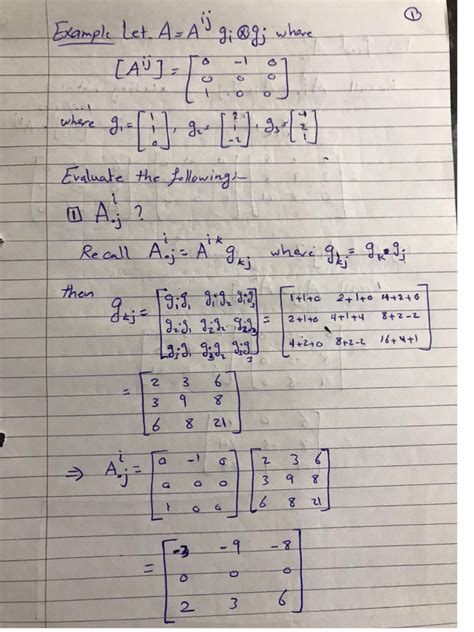 ①
Example Let A = A^{ij} g_i ⊗ g_j where
[A^{ij}] = [0 -1 0; 0 0 0; 1 0 0]
where g_1 = [1; 1; 0], g_2 = [2; 1; -2], g_3 = [4; 2; 1]
Evaluate the following:-
① A^i_{.j} ?
Recall A^i_{.j} = A^{ik} g_{kj} where g_{kj} = g_k • g_j
then g_{kj} = [g_1g_1 g_1g_2 g_1g_3; g_2g_1 g_2g_2 g_2g_3; g_3g_1 g_3g_2 g_3g_3] = [1+1+0 2+1+0 4+2+0; 2+1+0 4+1+4 8+2-2; 4+2+0 8+2-2 16+4+1]
= [2 3 6; 3 9 8; 6 8 21]
⇒ A^i_{.j} = [0 -1 0; 0 0 0; 1 0 0] [2 3 6; 3 9 8; 6 8 21]
= [-3 -9 -8; 0 0 0; 2 3 6]